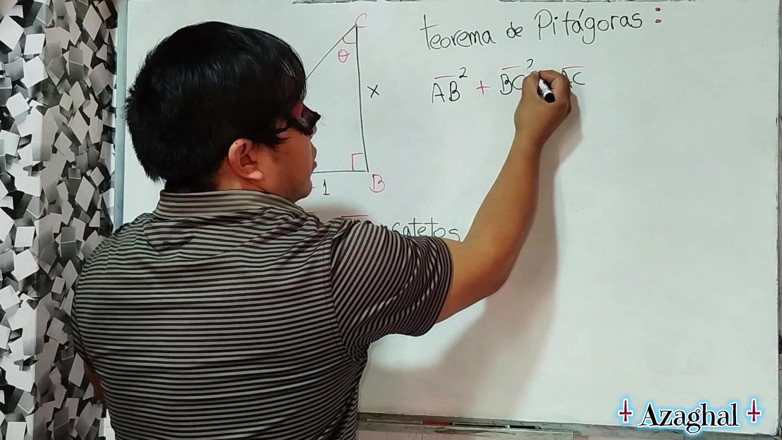 C
teorema de Pitágoras:
θ
x
AB² + BC² AC
1
B
catetos
✝ Azaghal ✝